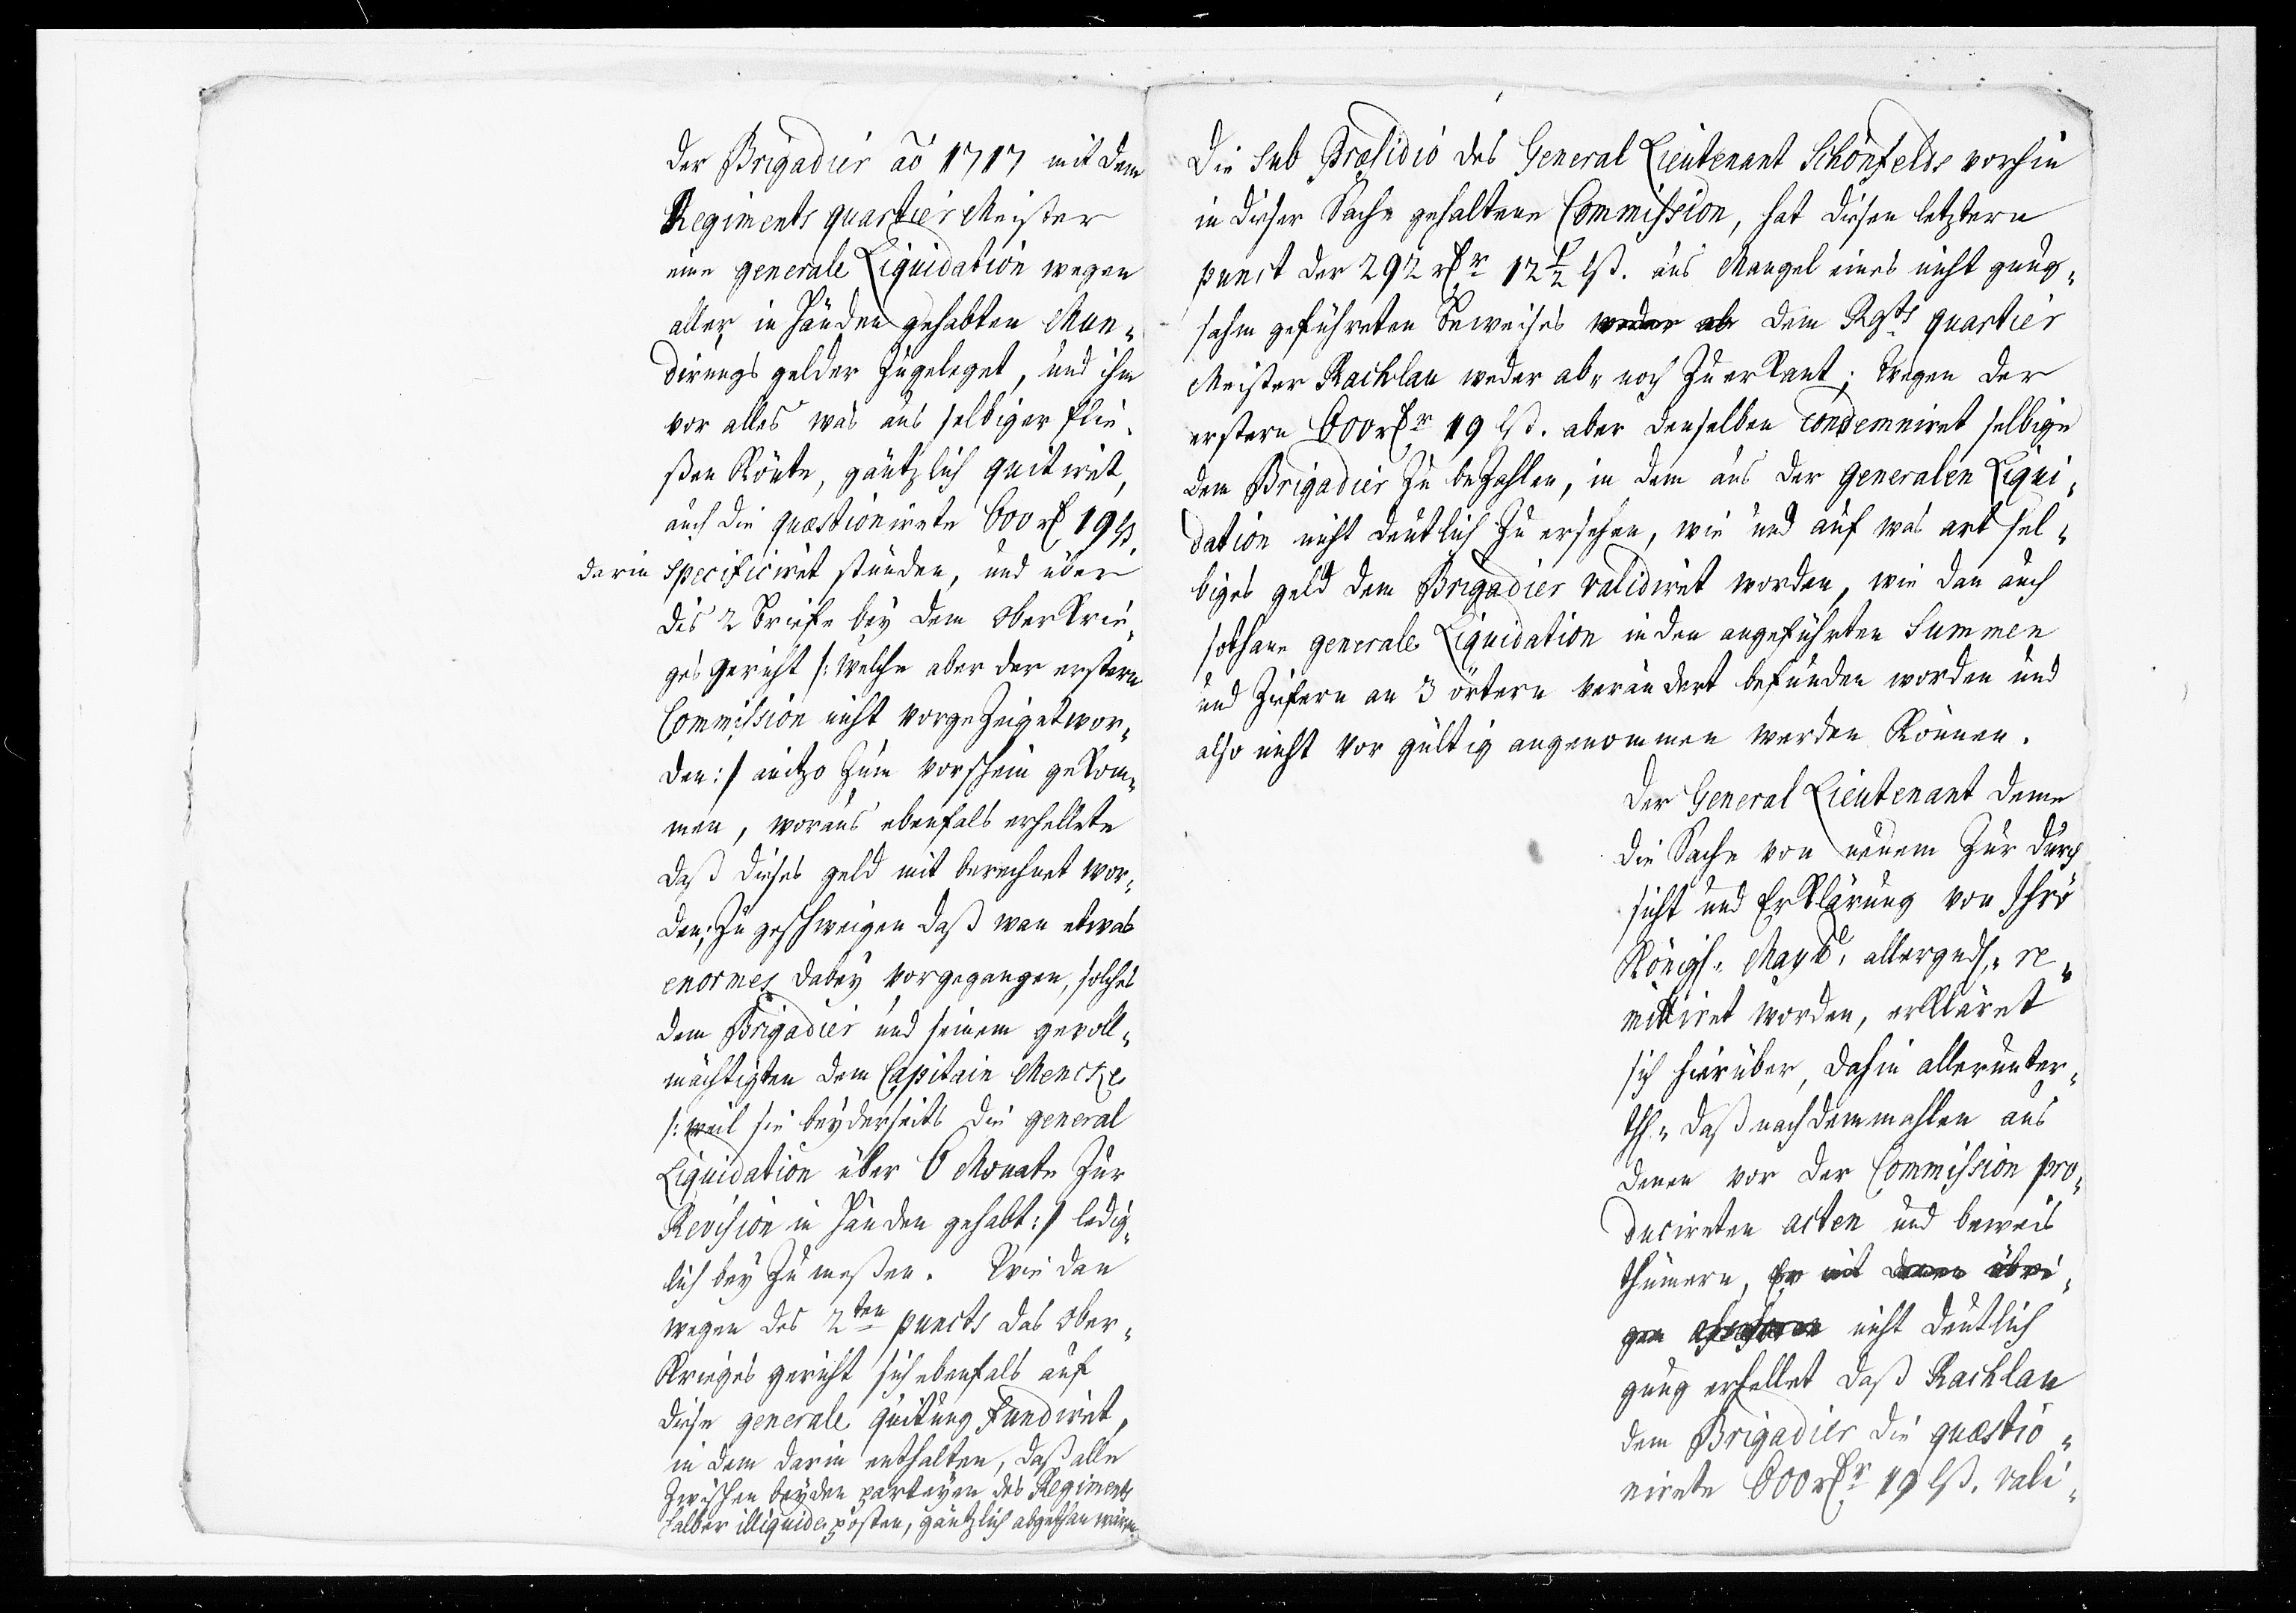 der Brigadier aō 1717 mit dem
Regiments quartier Meister
eine generale Liquidation wegen
aller in Händen gehabten Mun„
dirungs gelder zugeleget, und ihm
vor alles was aus selbiger flie„
ßen könte, gäntzlich quitiret,
auch die quæstionirete 600 rthl 19 lß.
darin specificiret stünden, und über
dis 2 briefe bey dem Ober Krie„
ges gericht /: welche aber der erstern
Commission nicht vorgezeiget wor„
den :/ anitzo zum vorschein gekom„
men, woraus ebenfals erhellete
daß dieses geld mit berechnet wor„
den; zu geschweigen daß wan etwas
enormes dabey vorgegangen, solches
dem Brigadier und seinem gevoll„
mächtigten dem Capitain Mencke
/: weil sie beyderseits die general
Liquidation über 6 Monate zur
Revision in Händen gehabt :/ ledig„
lich bey zu meßen. Wie dan
wegen des 2ten puncts das Ober„
Krieges gericht sich ebenfals auf
diese generale quitung fundiret,
in dem darin enthalten, daß alle
zwischen beyden parteyen des Regiments
halber illiquide posten, gäntzlich abgethan wären.
Die sub Præsidio des General Lieutenant Schönfelds vorhin
in dieser Sache gehaltene Commission, hat diesen letztern
punct der 292 rthr 12½ lß. aus Mangel eines nicht gnug„
sahm geführeten Beweises weder ab dem Rgts quartier
Meister Rachlau weder ab„ noch zuerkant; wegen der
erstern 600 rthr 19 lß. aber denselben condemniret selbige
dem Brigadier zu bezahlen, in dem aus der generalen Liqui„
dation nicht deutlich zu ersehen, wie und auf was art sel„
biges geld dem Brigadier validiret worden, wie dan auch
sothane generale Liquidation in den angeführten Summen
und Ziefern an 3 örtern verändert befunden worden und
also nicht vor gültig angenommen werden können.
Der General Lieutenant deme
die Sache von neuem zur durch
sicht und Erklärung von Ihro
Königl. Maytt. allergndst. re„
mittiret worden, erkläret
sich hierüber, dahin allerunter„
thst. daß nachdemmahlen aus
denen vor der Commission pro„
ducireten acten und beweis
thümern, Er mit denen übri„
gen nicht deutlich
gnug erhellet daß Rachlau
dem Brigadier die quæstio„
nirete 600 rthr 19 lß. vali„